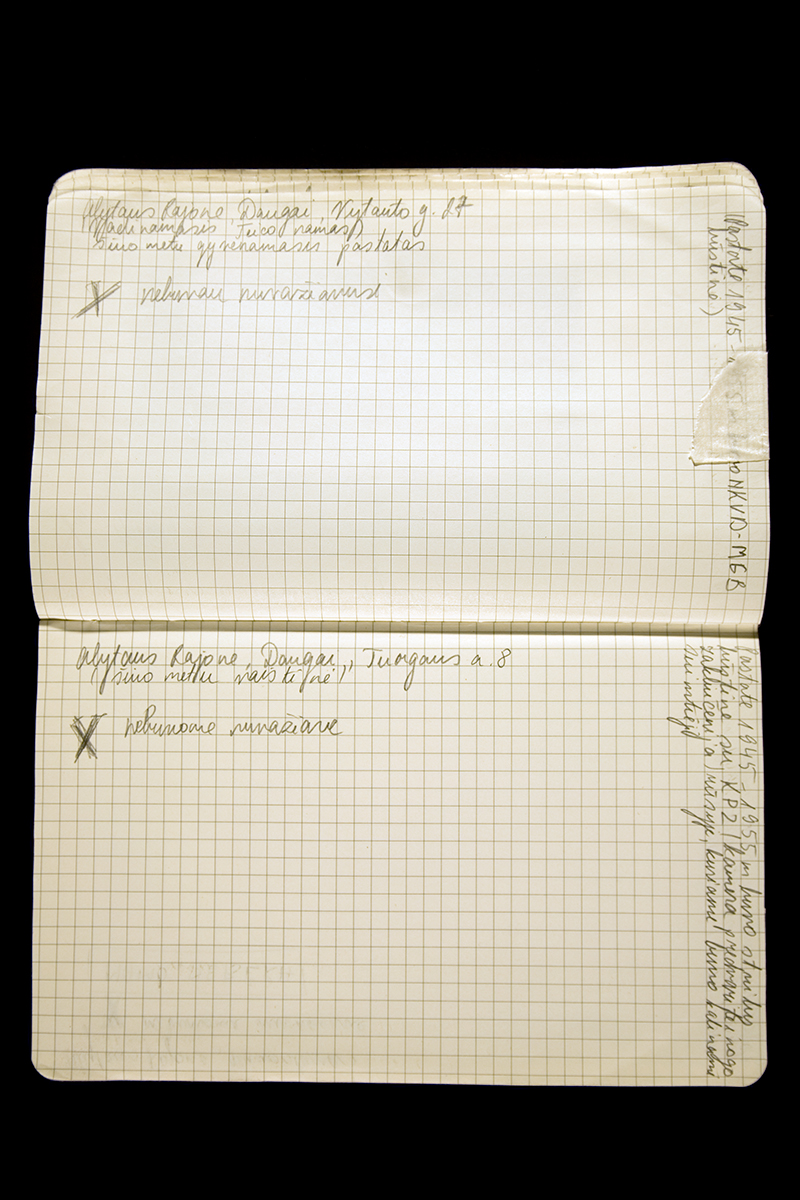 Alytaus Rajone, Daugai, Vytauto g. 27
(Vadinamasis Fuco namas)
šiuo metu gyvenamasis pastatas
X nebuvau nuvažiavus
(Pastate 1945 - NKVD-MGB
būstinė)
Alytaus Rajone, Daugai, Turgaus a. 8
(šiuo metu vaistinė)
X nebuvome nuvažiavę
Pastate 1945 - 1955 m buvo stribų
būstinė su KPZ (kamera predvaritelnogo
zakliučenija) rūsyje, kuriame buvo kalinami
suimtieji